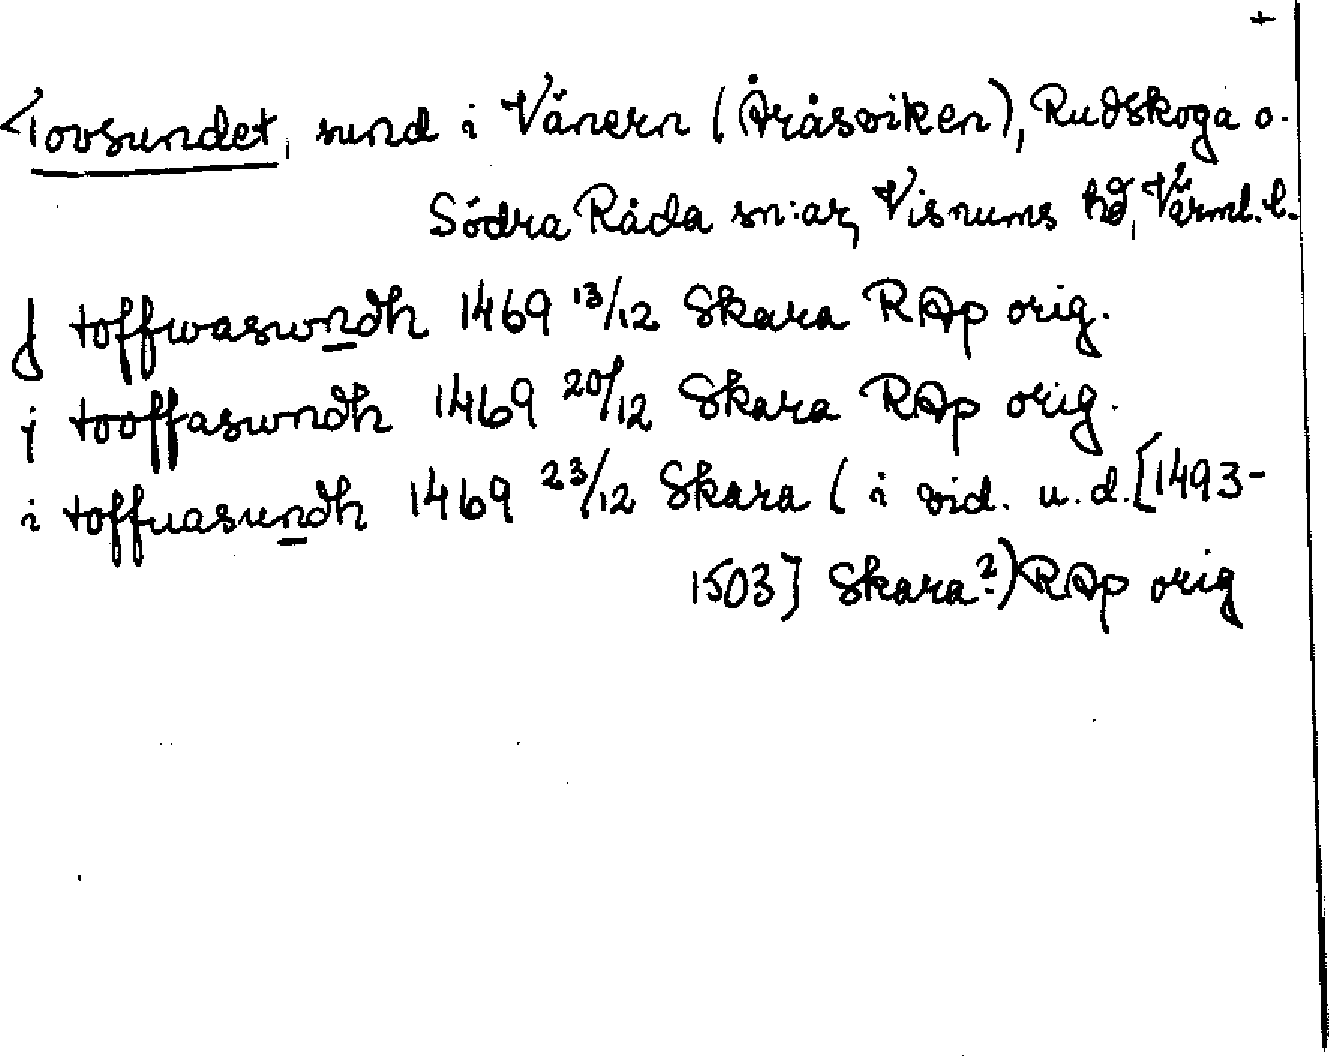 +
Tovsundet, sund i Vänern (Åråsviken), Rudskoga o.
Södra Råda sn:ar, Visnums hd, Värml. l.
J toffwaswndh 1469 13/12 Skara RAp orig.
j tooffaswndh 1469 20/12 Skara RAp orig.
i toffuasundh 1469 23/12 Skara (i vid. u.d. [1493-
1503] Skara?) RAp orig